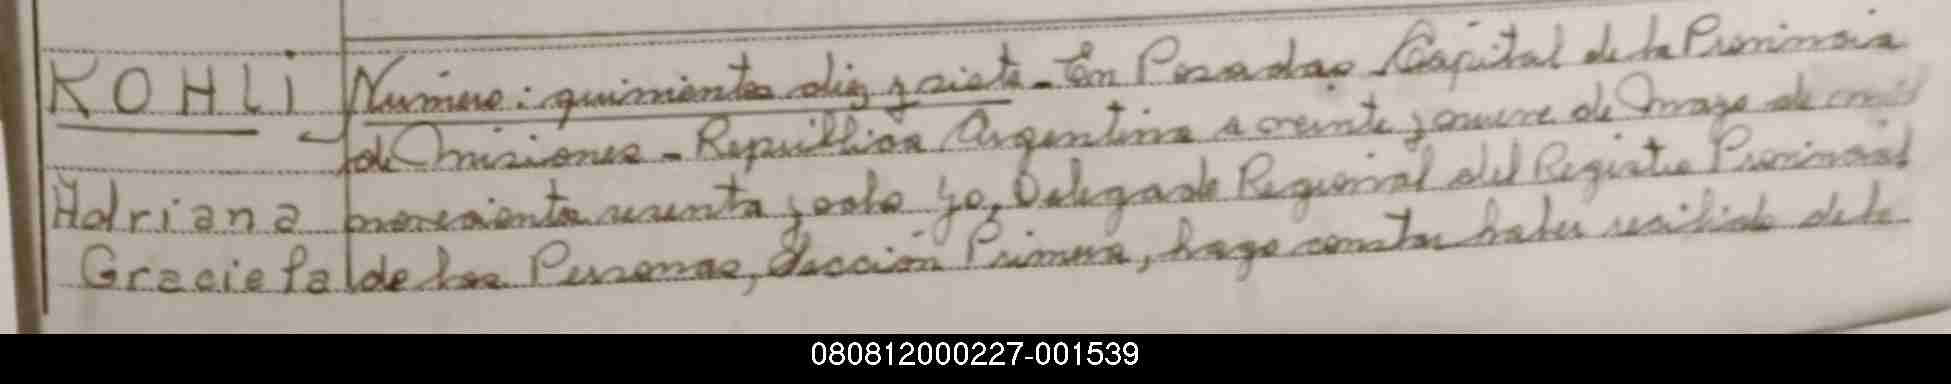 KOHLI
Adriana
Graciela
Número: quinientos diez y siete - En Posadas, Capital de la Provincia
de Misiones - República Argentina a veinte y nueve de Mayo de mil
novecientos sesenta y ocho Yo, Delegado Regional del Registro Provincial
de las Personas, Sección Primera, hago constar haber recibido de la
080812000227-001539